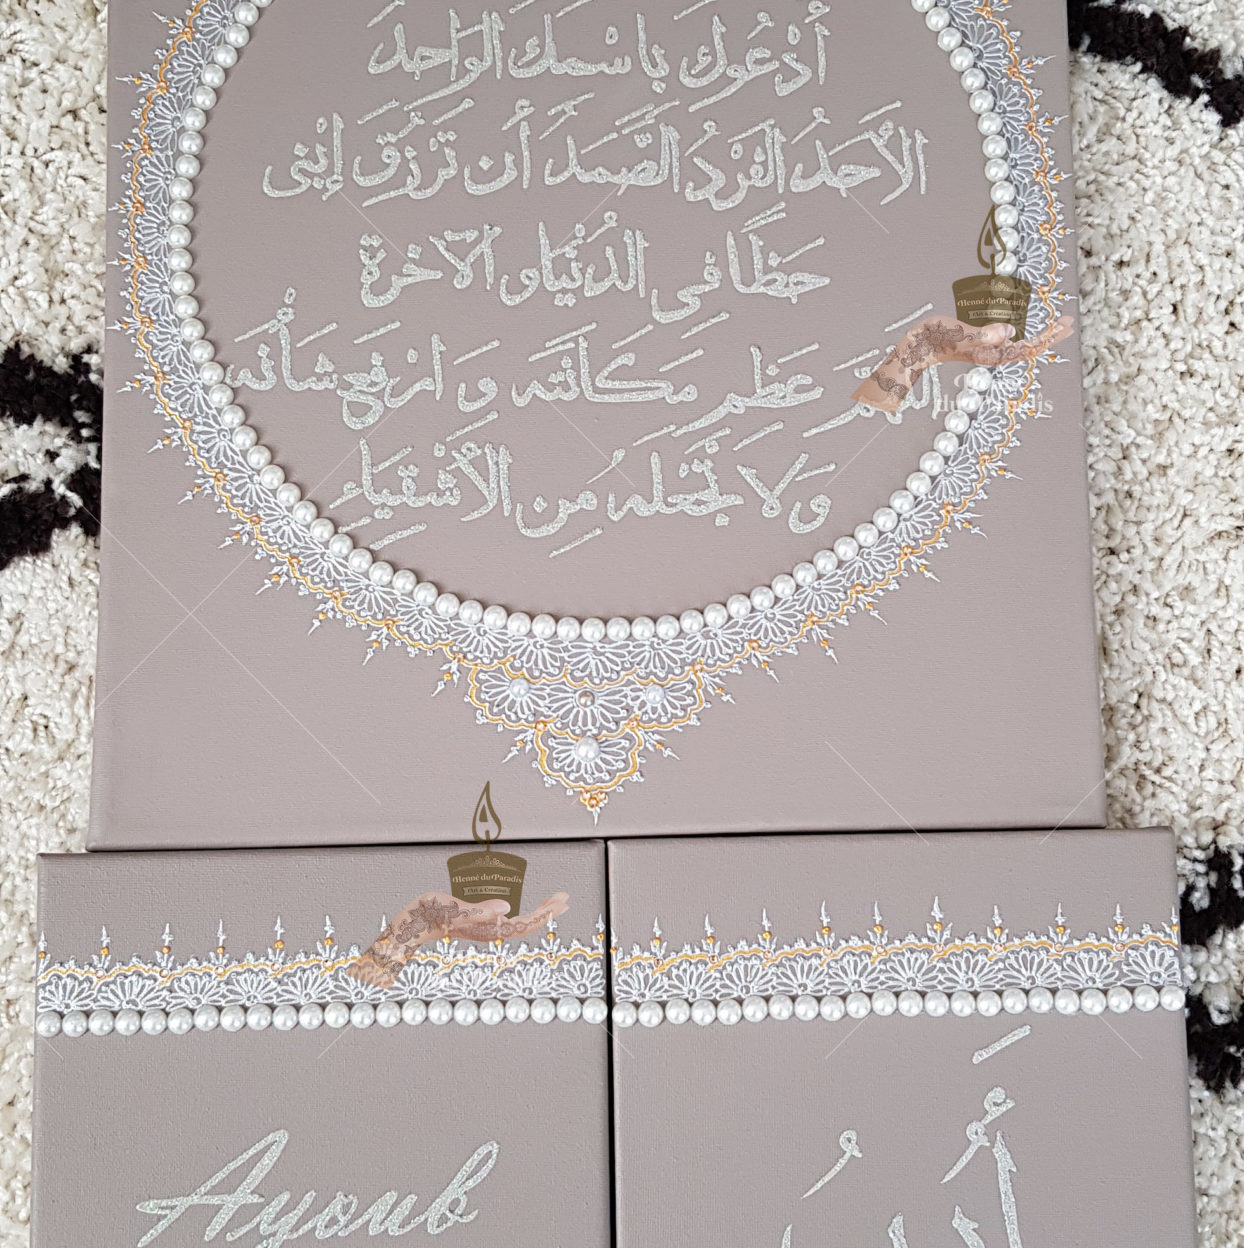 أَدْعُوكَ بِاسْمِكَ الوَاحِد
الأَحَدُ الفَرْدُ الصَّمَدُ أَن تَرْزُقَ إبْنِى
حَظًّا فِى الدُنْيَا وَ الآخِرَة
عَظِّم مَكَانَتَه وَ ارْفَع شَأنَه
وَلَا تَجْعَلْهُ مِنَ الأَشْقِيَاءِ
Henné du Paradis
Art & Création
Henné du Paradis
Art & Création
Ayoub